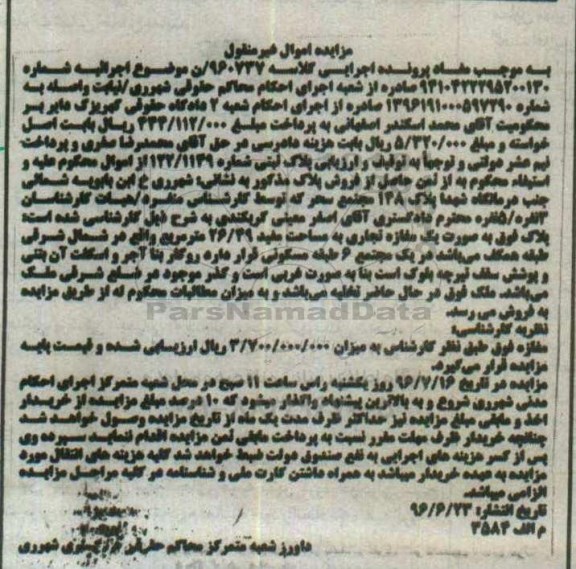 مزایده اموال غیرمنقول
به موجب مفاد پرونده اجرایی کلاسه ۹۶۰۷۳۷/ن موضوع اجرائیه شماره
۹۴۱۰۴۲۲۲۹۵۲۰۰۱۳۰ صادره از شعبه اجرای احکام محاکم حقوقی شهرری/نیابت واصله به
شماره ۱۳۹۶۱۹۱۰۰۰۵۹۷۲۹۰ صادره از اجرای احکام شعبه ۲ دادگاه حقوقی کهریزک دایر بر
محکومیت آقای محمد اسکندر اصفهانی به پرداخت مبلغ ۲۴۴/۱۱۲/۰۰۰ ریال بابت اصل
خواسته و مبلغ ۵/۳۲۰/۰۰۰ ریال بابت هزینه دادرسی در حق آقای محمدرضا صفری و پرداخت
نیم عشر دولتی و توجهاً به توقیف و ارزیابی پلاک ثبتی شماره ۱۲۲/۱۱۴۹ از اموال محکوم علیه و
استیفاء محکوم به از ثمن حاصل از فروش پلاک مذکور به نشانی: شهرری خ ابن بابویه شمالی
جنب درمانگاه شهدا پلاک ۱۴۸ مجتمع سحر که توسط کارشناسی منفرد/هیات کارشناسان
۳نفره/۵نفره محترم دادگستری آقای اصغر معینی کربکندی به شرح ذیل کارشناسی شده است:
پلاک فوق به صورت یک مغازه تجاری به مساحت مفید ۲۶/۴۹ مترمربع واقع در شمال شرقی
طبقه همکف می‌باشد در یک مجتمع ۶ طبقه مسکونی قرار دارد روکار بنا آجر و اسکلت آن بتنی
و پوشش سقف تیرچه بلوک است بنا به صورت غربی است و گذر موجود در ضلع شرقی ملک
می‌باشد. ملک فوق در حال حاضر تخلیه می‌باشد و به میزان مطالبات محکوم له از طریق مزایده
به فروش می رسد.
ParsNamadData
نظریه کارشناسی:
مغازه فوق طبق نظر کارشناس به میزان ۳/۷۰۰/۰۰۰/۰۰۰ ریال ارزیابی شده و قیمت پایه
مزایده قرار می‌گیرد.
مزایده در تاریخ ۹۶/۷/۱۶ روز یکشنبه راس ساعت ۱۱ صبح در محل شعبه متمرکز اجرای احکام
مدنی شهرری شروع و به بالاترین پیشنهاد واگذار میشود که ۱۰ درصد مبلغ مزایده از خریدار
اخذ و مابقی مبلغ مزایده نیز حداکثر ظرف مدت یک ماه از تاریخ مزایده وصول خواهد شد
چنانچه خریدار ظرف مهلت مقرر نسبت به پرداخت مابقی ثمن مزایده اقدام ننماید سپرده وی
پس از کسر هزینه های اجرایی به نفع صندوق دولت ضبط خواهد شد کلیه هزینه های انتقال مورد
مزایده به عهده خریدار میباشد به همراه داشتن کارت ملی و شناسنامه در کلیه مراحل مزایده
الزامی میباشد.
تاریخ انتشار: ۹۶/۶/۲۳
م الف ۳۵۸۴
دادورز شعبه متمرکز محاکم حقوقی شهرری